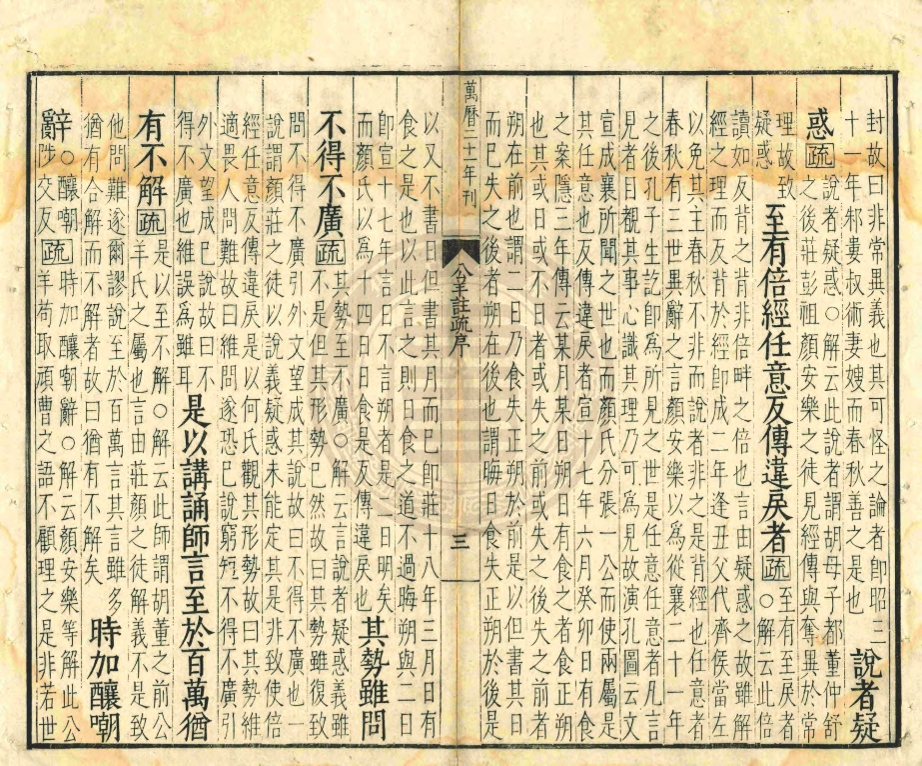 封故曰非常異義也其可怪之論者即昭三
十一年邾婁叔術妻嫂而春秋善之是也
說者疑
惑疏
說者疑惑○解云此說者謂胡母子都董仲舒
之後莊彭祖顏安樂之徒見經傳與奪異於常
理故致
疑惑
至有倍經任意反傳違戾者疏
至有至戾者
○解云此倍
讀如反背之背非倍畔之倍也言由疑惑之故雖解
經之理而反背於經即成二年逢丑父代齊侯當左
以免其主春秋不非而說者非之是背經也任意者
春秋有三世異辭之言顏安樂以為從襄二十一年
之後孔子生訖即為所見之世是任意任意者凡言
見者目覩其事心識其理乃可為見故演孔圖云文
宣成襄所聞之世也而顏氏分張一公而使兩屬是
其任意也反傳違戾者宣十七年六月癸卯日有食
之案隱三年傳云某月某日朔日有食之者食正朔
也其或日或不日者或失之前或失之後失之前者
朔在前也謂二日乃食失正朔於前是以但書其日
而巳失之後者朔在後也謂晦日食失正朔於後是
萬曆二十一年刊
公羊註疏序
三
以又不書日但書其月而巳即莊十八年三月日有
食之是也以此言之則日食之道不過晦朔與二日
即宣十七年言日不言朔者是二日明矣
而顏氏以為十四日日食是反傳違戾也
其勢雖問
不得不廣疏
其勢至不廣○解云言說者疑惑義雖
不是但其形勢巳然故曰其勢雖復致
問不得不廣引外文望成其說故曰不得不廣也一
說謂顏莊之徒以說義疑惑未能定其是非致使倍
經任意反傳違戾是以何氏觀其形勢故曰其勢維
適畏人問難故曰維問遂恐巳說窮短不得不廣引
外文望成巳說故曰不
得不廣也維誤為雖耳
是以講誦師言至於百萬猶
有不解疏
是以至不解○解云此師謂胡董之前公
羊氏之屬也言由莊顏之徒解義不是致
他問難遂爾謬說至於百萬言其言雖多
猶有合解而不解者故曰猶有不解矣
時加釀嘲
辭
○釀嘲
陟交反
疏
時加釀嘲辭○解云顏安樂等解此公
羊苟取頑曹之語不顧理之是非若世